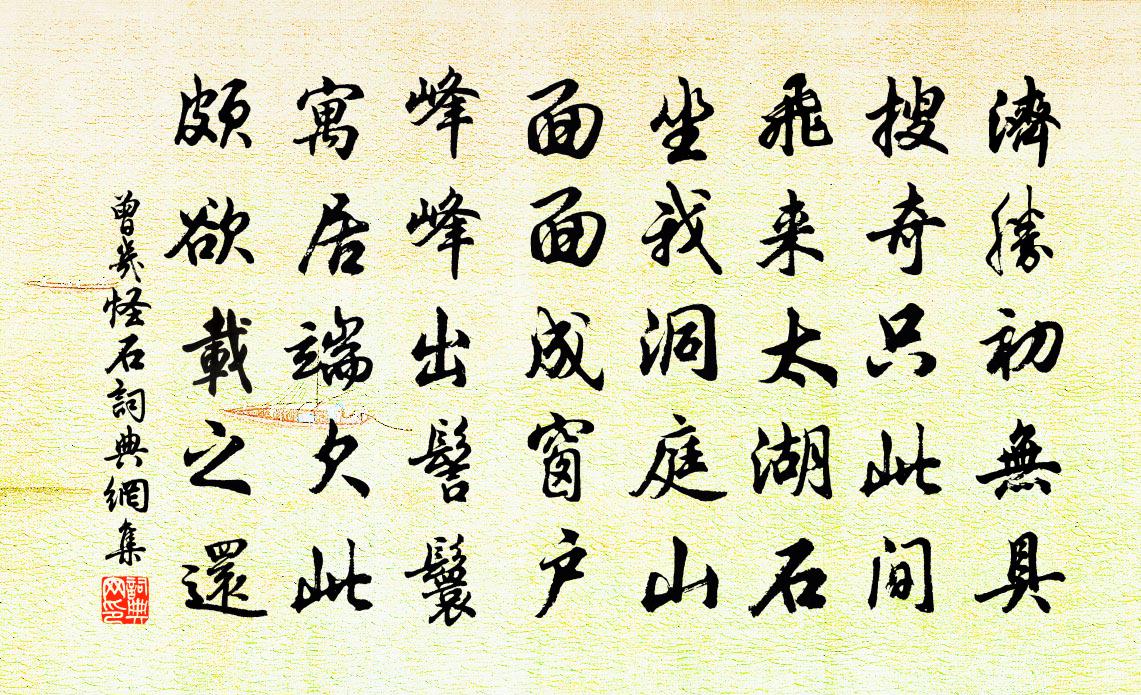 濟勝初無具
搜奇只此间
飛来太湖石
坐我洞庭山
面面成窗户
峰峰出髻鬟
寓居端欠此
頗欲載之還
曾幾怪石詞典網集
詞典网印